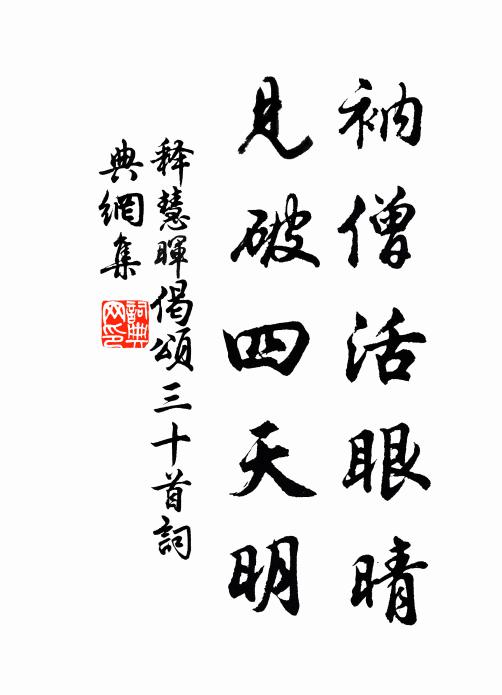 衲僧活眼晴
見破四天明
释慧暉偈頌三十首詞
典網集
詞典
网印